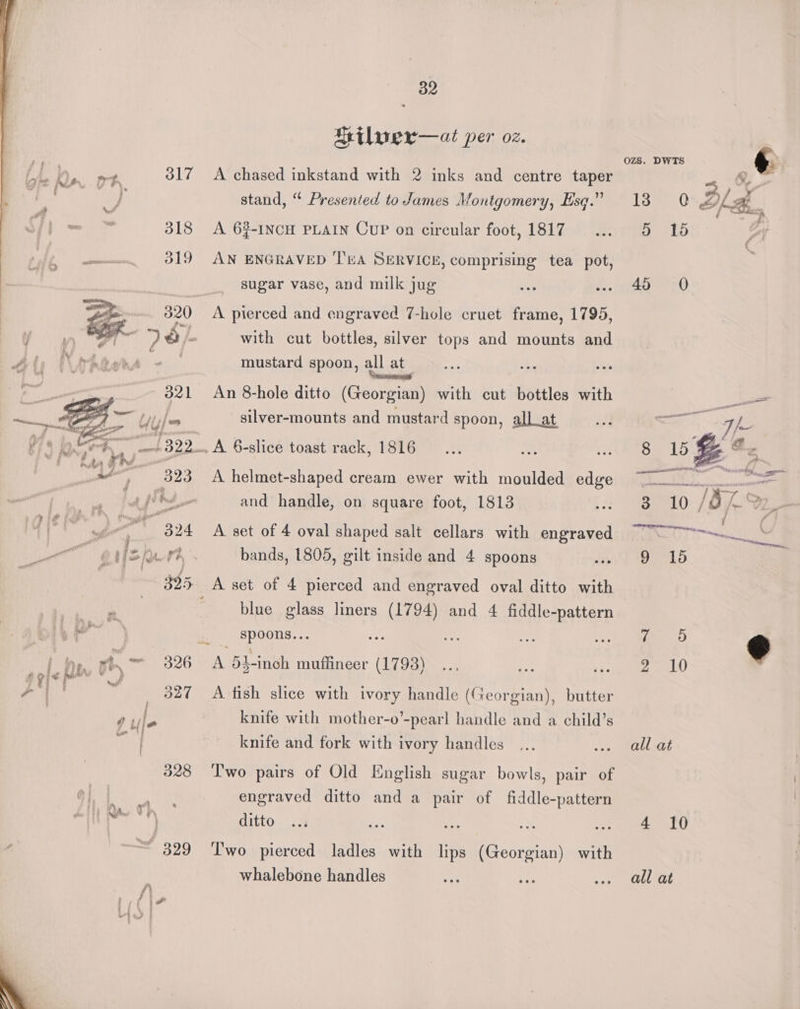 32
Silver—at per oz.
OZS. DWTS
317 A chased inkstand with 2 inks and centre taper
stand, “ Presented to James Montgomery, Esq.” 13 0
318 A 6¾-INCH PLAIN CUP on circular foot, 1817 ... 5 15
319 AN ENGRAVED TEA SERVICE, comprising tea pot,
sugar vase, and milk jug ... ... 45 0
320 A pierced and engraved 7-hole cruet frame, 1795,
with cut bottles, silver tops and mounts and
mustard spoon, all at ... ... ...
321 An 8-hole ditto (Georgian) with cut bottles with
silver-mounts and mustard spoon, all at ...
322 A 6-slice toast rack, 1816 ... ... ... 8 15
323 A helmet-shaped cream ewer with moulded edge
and handle, on square foot, 1813 ... 3 10
324 A set of 4 oval shaped salt cellars with engraved
bands, 1805, gilt inside and 4 spoons ... 9 15
325 A set of 4 pierced and engraved oval ditto with
blue glass liners (1794) and 4 fiddle-pattern
spoons... ... ... ... ... 7 5
326 A 5½-inch muffineer (1793) ... ... ... 2 10
327 A fish slice with ivory handle (Georgian), butter
knife with mother-o’-pearl handle and a child’s
knife and fork with ivory handles ... ... all at
328 Two pairs of Old English sugar bowls, pair of
engraved ditto and a pair of fiddle-pattern
ditto ... ... ... ... ... 4 10
329 Two pierced ladles with lips (Georgian) with
whalebone handles ... ... ... all at